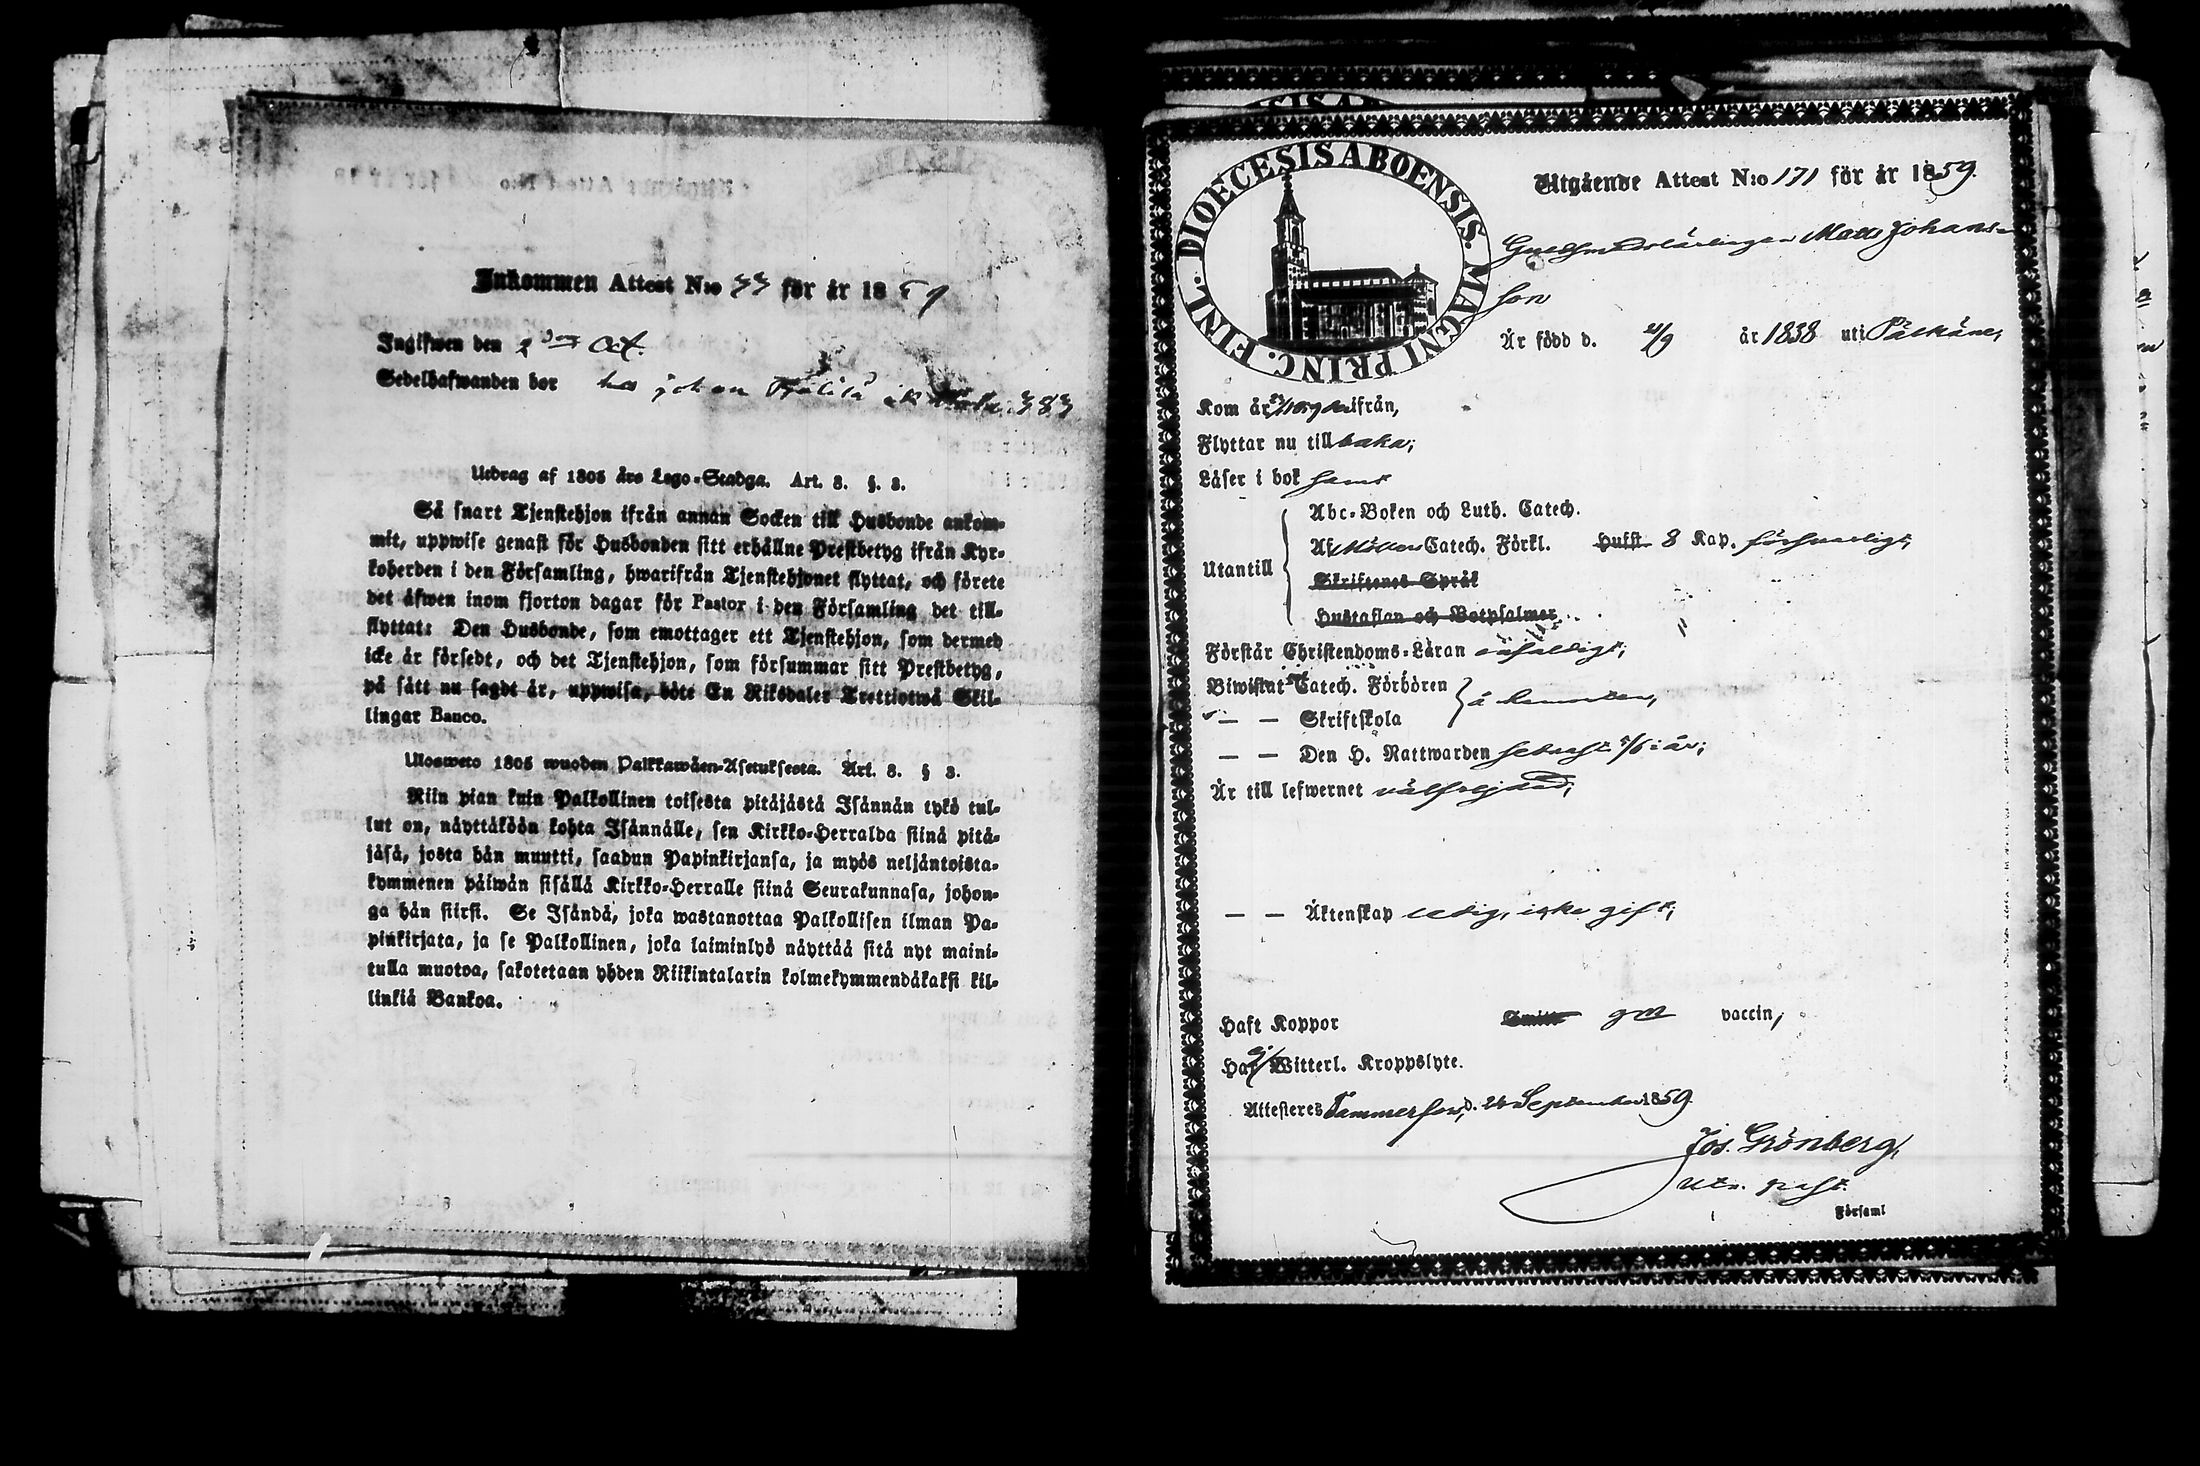 Inkommen Attest N:o 33 för år 1859
Ingifwen den 2 Oct.
Sedelhafwanden bor hos Johan
Utdrag af 1805 års Lego-Stadga. Art. 8. §. 3.
Så snart Tjenstehjon ifrån annan Socken till Husbonde ankom-
mit, uppwise genast för Husbonden sitt erhållne Prestbetyg ifrån Kyr-
koherden i den Församling, hwarifrån Tjenstehjonet flyttat, och förete
det äfwen inom fjorton dagar för Pastor i den Församling det till-
flyttat: Den Husbonde, som emottager ett Tjenstehjon, som dermed
icke är försedt, och det Tjenstehjon, som försummar sitt Prestbetyg,
på sätt nu sagdt är, uppwisa, böte En Riksdaler Trettiotwå Skil-
lingar Banco.
Ulosweto 1805 wuoden Palkkawäen-Asetuksesta. Art. 8. § 3.
Niin pian kuin Palkollinen toisesta pitäjästä Isännän tykö tul-
lut on, näyttäköön kohta Isännälle, sen Kirkko-Herralda siinä pitä-
jäsä, josta hän muutti, saadun Papinkirjansa, ja myös neljäntoista-
kymmenen päiwän sisällä Kirkko-Herralle siinä Seurakunnasa, johon-
ga hän siirsi. Se Isändä, joka wastanottaa Palkollisen ilman Pa-
pinkirjata, ja se Palkollinen, joka laiminlyö näyttää sitä nyt maini-
tulla muotoa, sakotetaan yhden Riikintalarin kolmekymmendäkaksi kil-
linkiä Bankoa.
FINL. DIOECESIS ABOENSIS. MAGNI PRINC.
Utgående Attest N:o 171 för år 1859.
Guldsmedslärlingen Matts Johans-
son
Är född d. 21/9 år 1838 uti Pälkäne,
Kom år ifrån,
Flyttar nu tillbaka;
Läser i bok
Abc-Boken och Luth. Catech.
Utantill
Af Möllers Catech. Förkl. Hufst. 8 Kap. försvarligt;
Skriftenes Språk
Hustaflan och Botpsalmer
Förstår Christendoms-Läran enfaldigt;
Biwistat Catech. Förhören
— — Skriftskola
— — Den H. Nattwarden sednast 5/6 i år;
Är till lefwernet välfrejdad;
— — Äktenskap ledig, icke gift;
Haft Koppor Smitt. gm vaccin,
Har ej Witterl. Kroppslyte.
Attesteres Tammerfors, d. 24 September 1859.
Jos. Grönberg,
Utr. past.
Församl